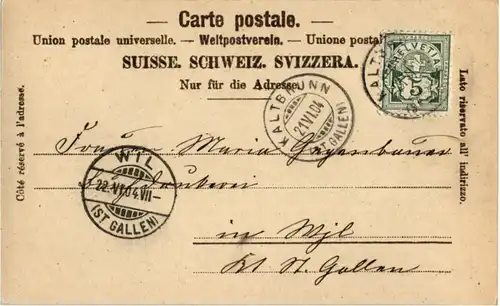 — Carte postale. —
Union postale universelle. — Weltpostverein. — Unione postale
SUISSE. SCHWEIZ. SVIZZERA.
Nur für die Adresse.
HELVETIA
5
KALTBRUNN
21.VI.04
(ST. GALLEN)
Côté réservé à l'adresse.
Lato riservato all' indirizzo.
Frau Maria Gegenbauer
WIL
22.VI.04.VII–
(ST GALLEN)
in Wyl
Kt St. Gallen